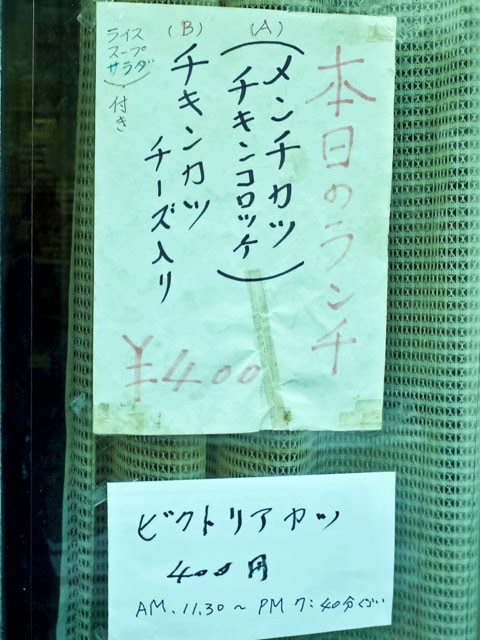 本日のランチ
(A)
メンチカツ
チキンコロッケ
(B)
チキンカツ
チーズ入り
ライス
スープ
サラダ
付き
¥400
ビクトリアカツ
400円
AM.11.30～PM7:40分ぐらい